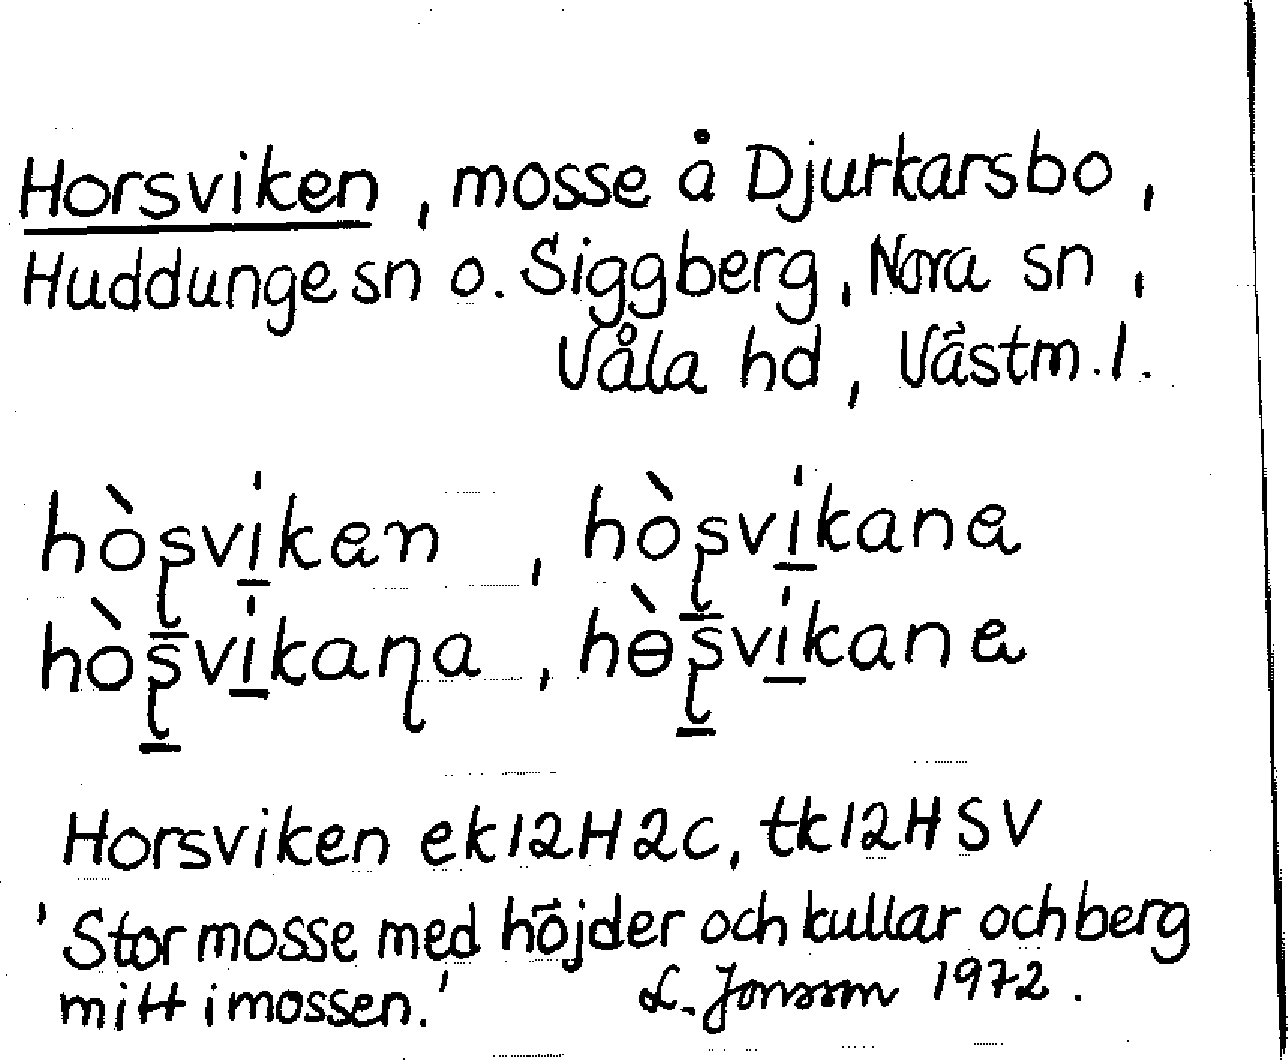 Horsviken, mosse å Djurkarsbo,
Huddunge sn o. Siggberg, Nora sn,
Våla hd, Västm. l.
hòʂvi̱ken, hòʂvi̱kana
hòʂvi̱kaɳa, hɵ̀ʂvi̱kana
Horsviken ek12H2c, tk12HSV
'Stor mosse med höjder och kullar och berg
mitt i mossen.' L. Jonsson 1972.